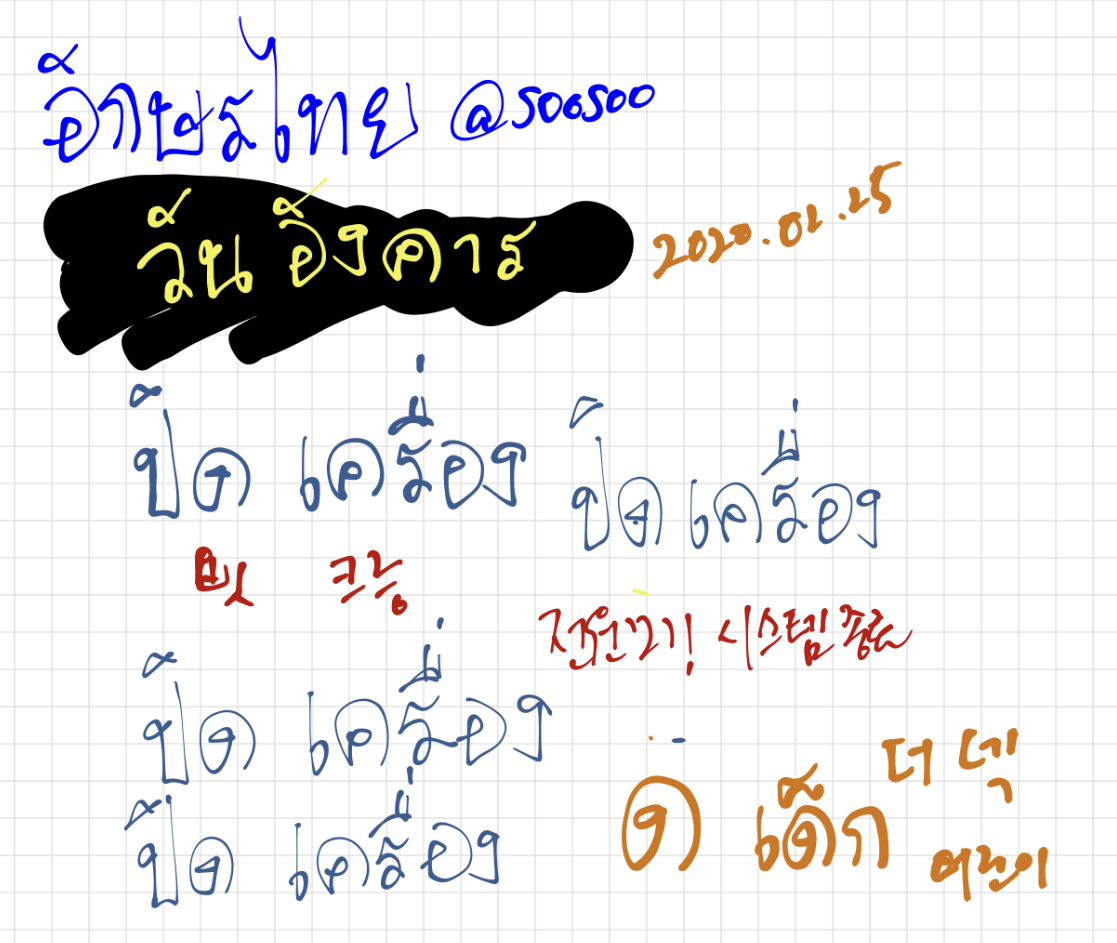 อักษรไทย @soosoo
วันอังคาร 2020.02.25
ปิด เครื่อง ปิดเครื่อง
삗 크릉
전원끄기! 시스템종료
ปิด เครื่อง
ปิด เครื่อง
ด เด็ก 더 덱
어린이